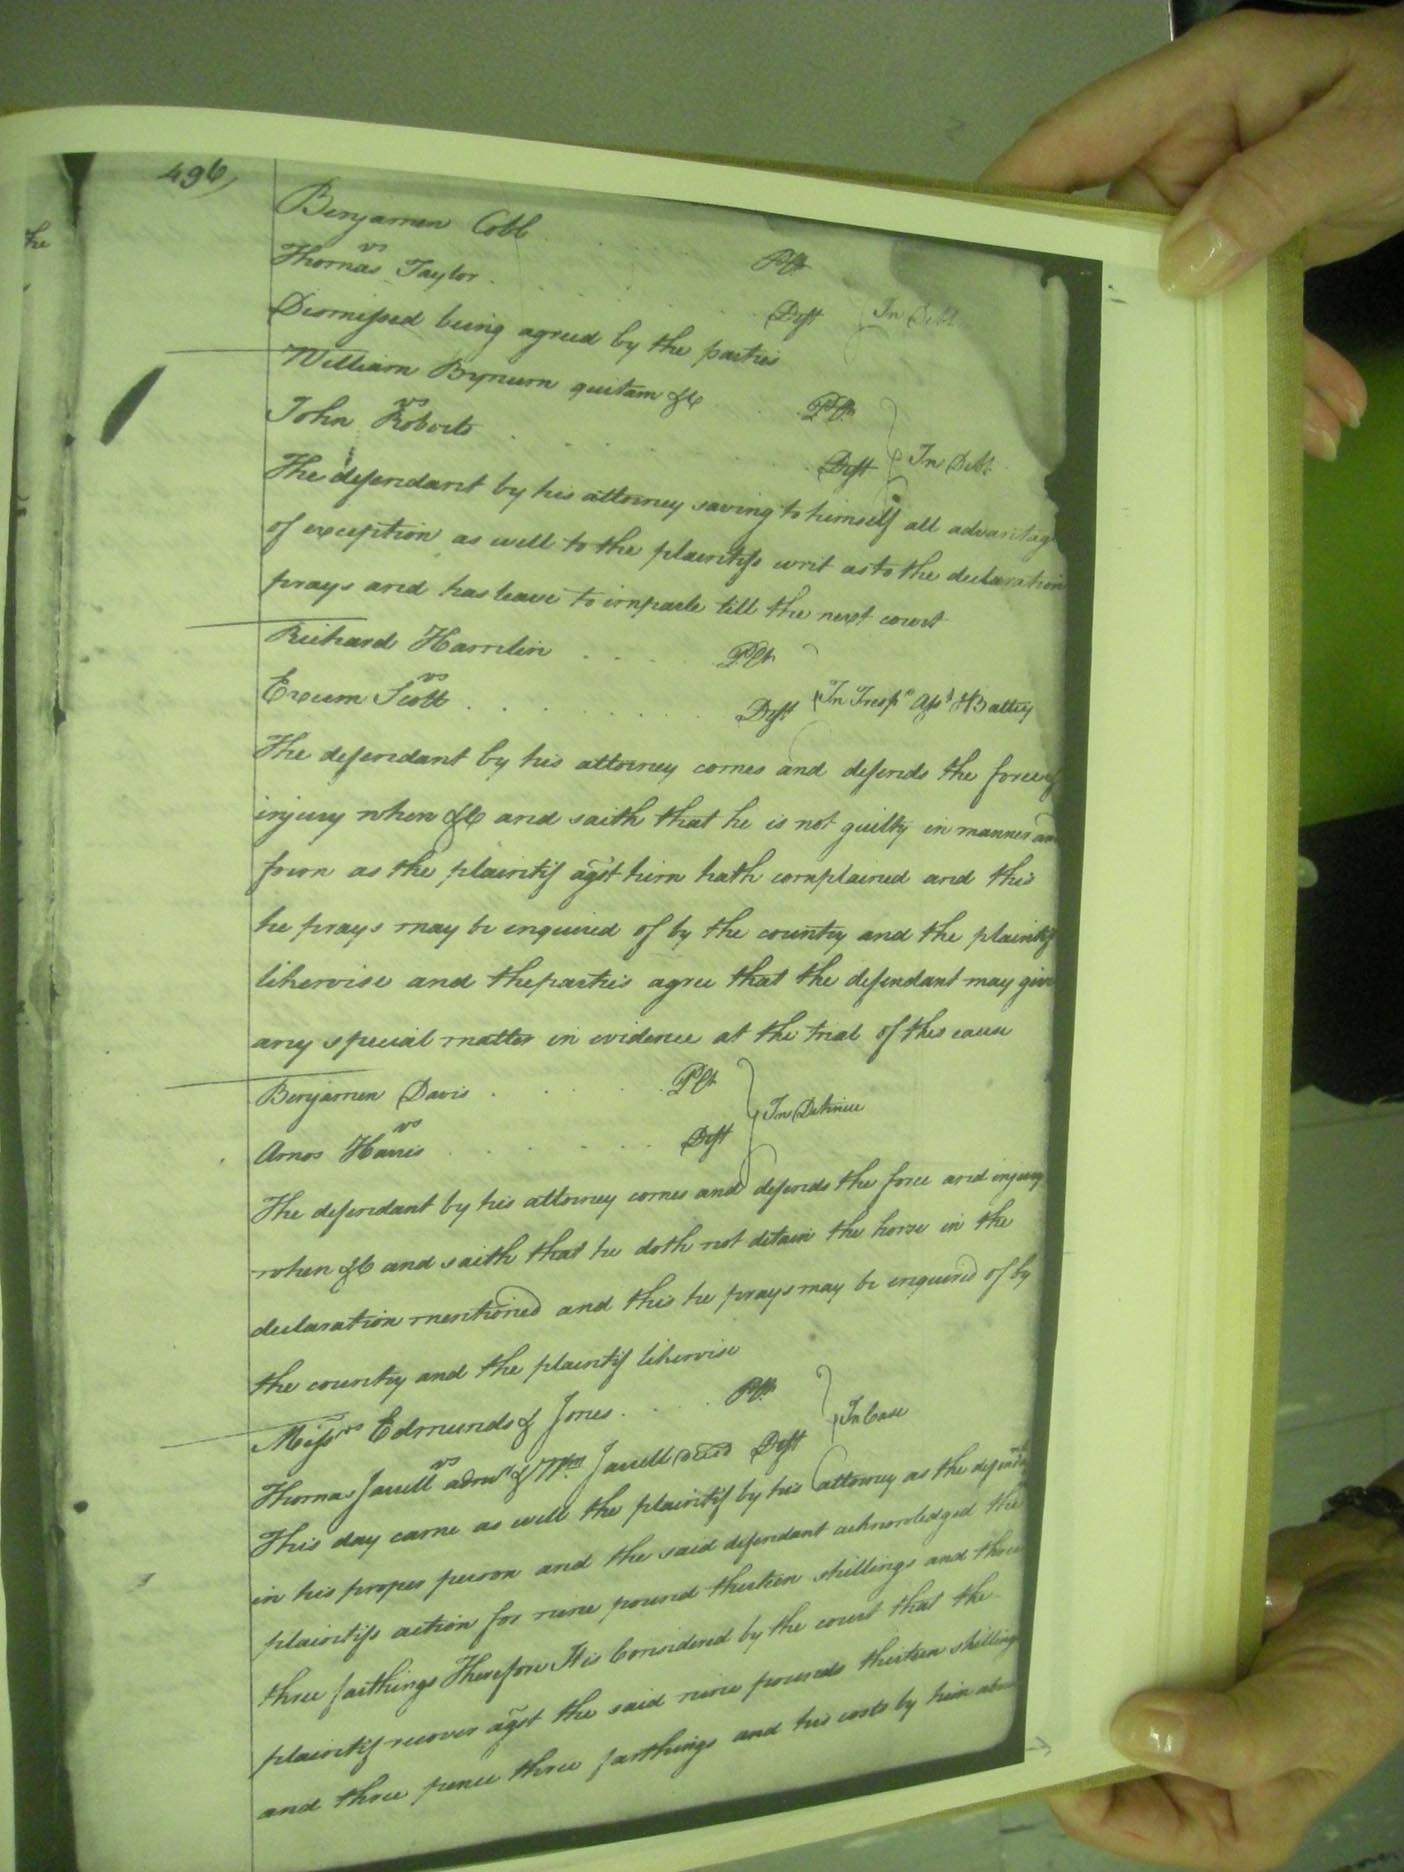 496)
he
Benjamen Cobb . . . . Plt
vs
Thomas Taylor . . . . Deft } In Debt
Dismissed being agreed by the parties
William Bynum quitam &c . . Plt
vs
John Roberts . . . . Deft } In Debt
The defendant by his attorney saving to himself all advantag
of exception as well to the plaintifs writ as to the declaration
prays and has leave to imparle till the next court
Richard Hamlin . . . . Plt
vs
Exum Scott . . . . Deft } In Tresp Asst & Battery
The defendant by his attorney comes and defends the force &
injury when &c and saith that he is not guilty in manner and
form as the plaintif agst him hath complained and this
he prays may be enquired of by the country and the plaintif
likewise and the parties agree that the defendant may give
any special matter in evidence at the trial of this cause
Benjamen Davis . . . . Plt
vs
Amos Harris . . . . Deft } In Detinue
The defendant by his attorney comes and defends the force and injury
when &c and saith that he doth not detain the horse in the
declaration mentioned and this he prays may be enquired of by
the country and the plaintif likewise
Messrs Edmunds & Jones . . . . Plt
vs
Thomas Jarrell admr of Wm Jarrell decd Deft } In Case
This day came as well the plaintif by his attorney as the defendant
in his proper person and the said defendant acknowledged the
plaintifs action for nine pound thirteen shillings and three
three farthings Therefore It is Considered by the court that the
plaintif recover agst the said nine pounds thirteen shillings
and three pence three farthings and his costs by him abou